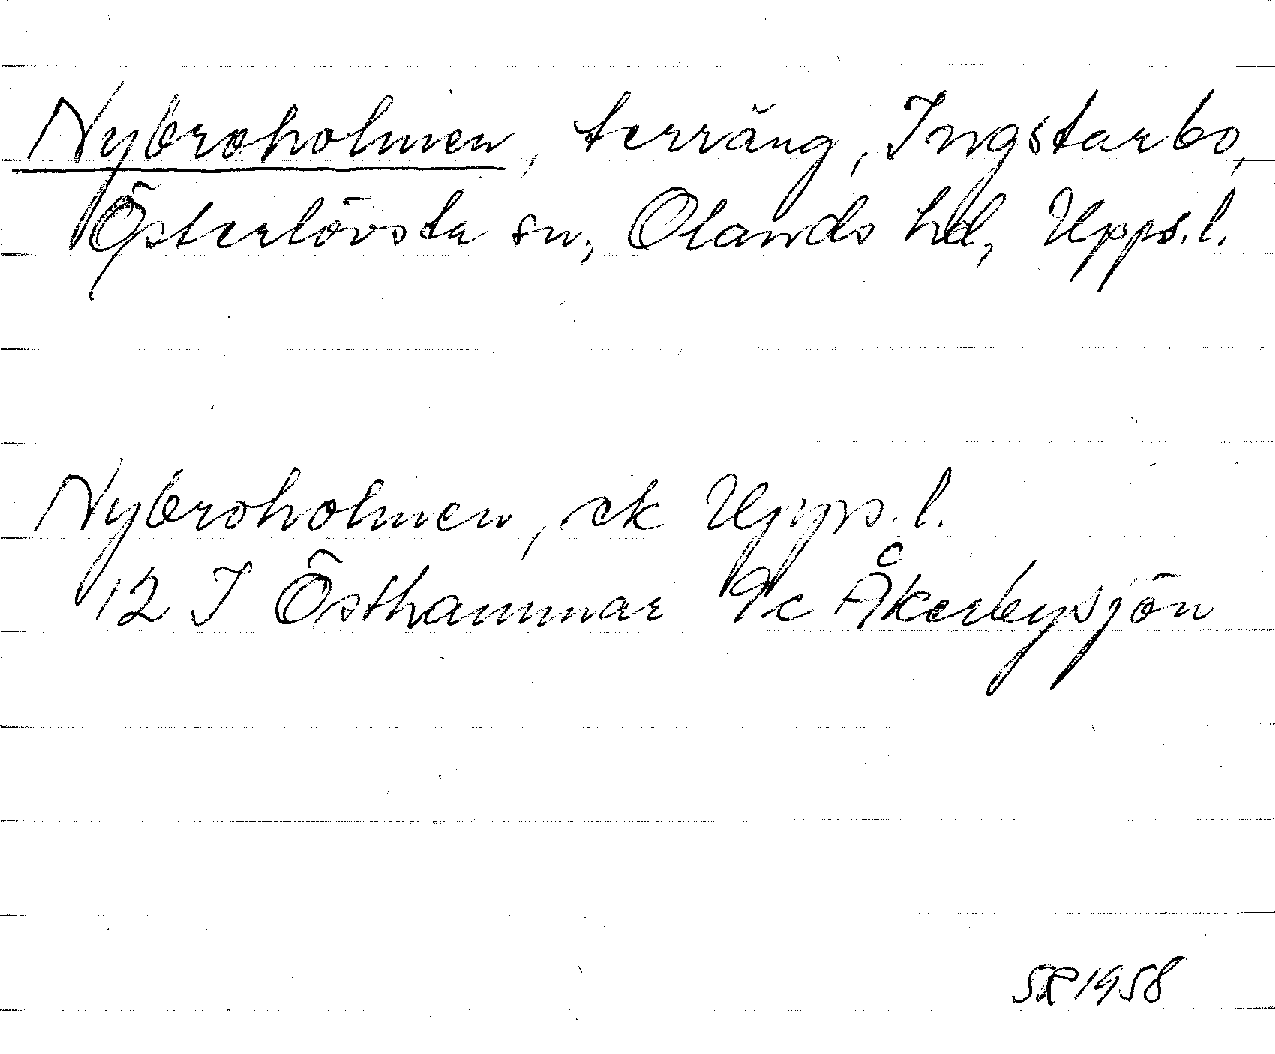 Nybroholmen, terräng, Ingstarbo,
Österlövsta sn, Olands hd, Upps.l.
Nybroholmen, ek Upps.l.
12 I Östhammar 9c Åkerbysjön
SR 1958